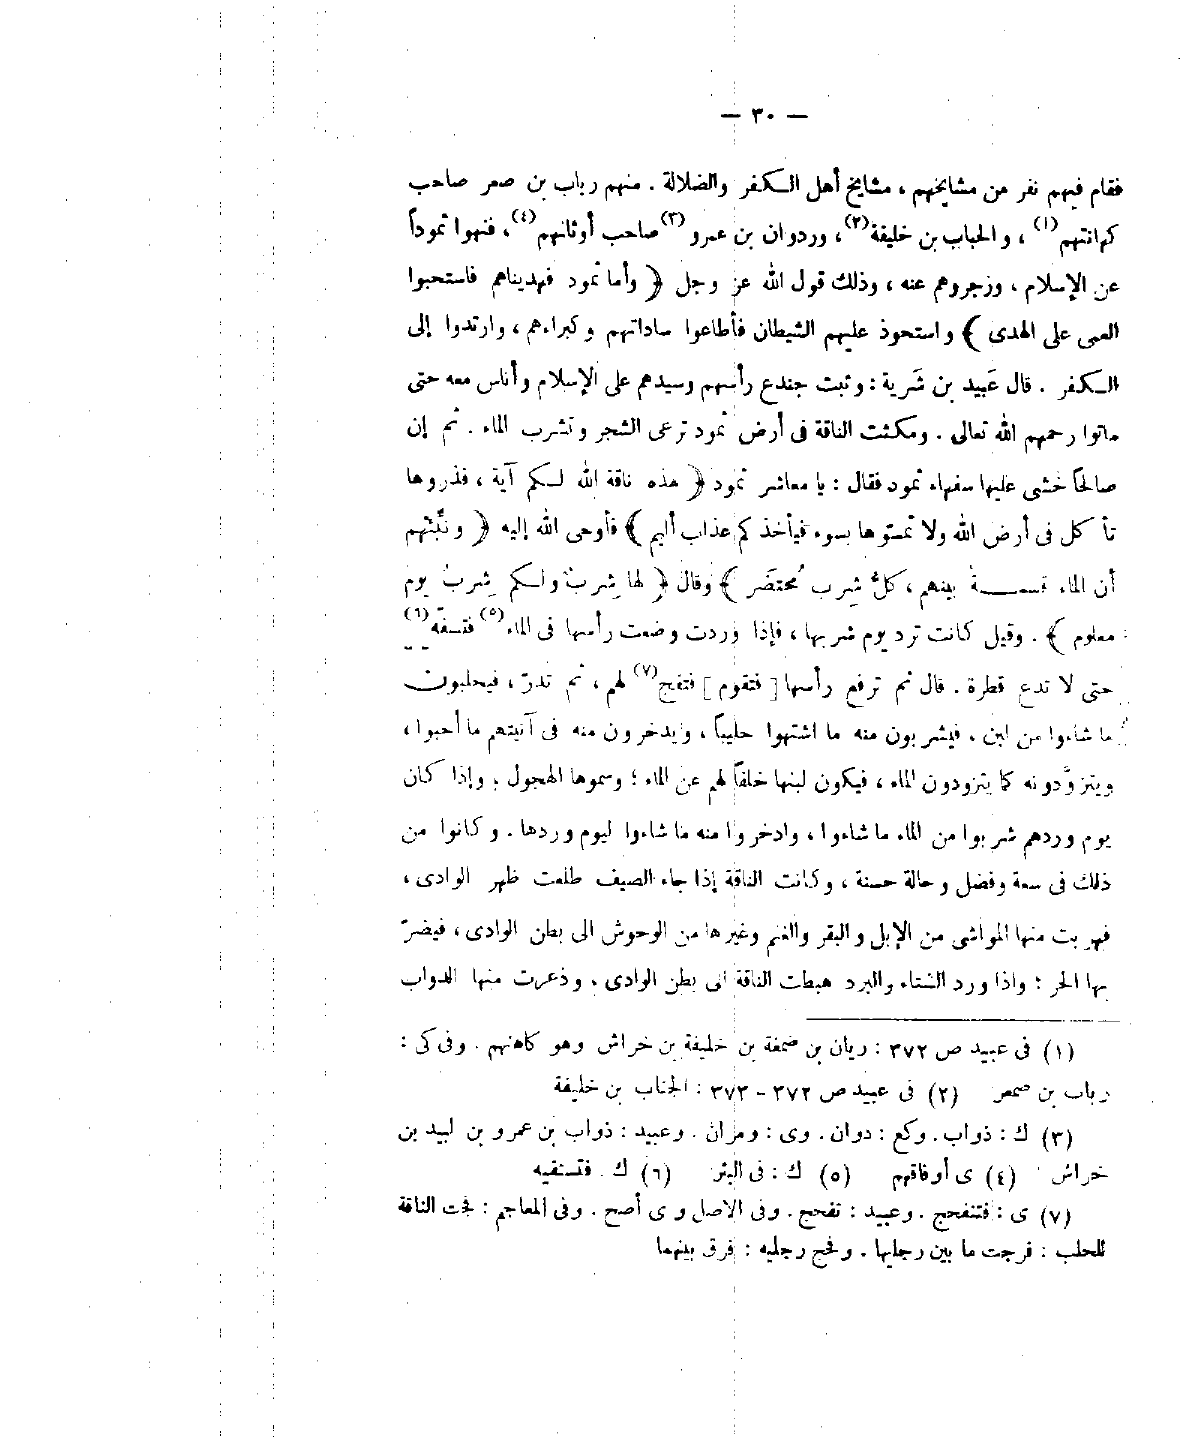 — ٣٠ —
فقام فيهم نفر من مشايخهم ، مشايخ أهل الكفر والضلالة . منهم رباب بن صعر صاحب
كهانتهم (١) ، والحباب بن خليفة (٢) ، وردوان بن عمرو (٣) صاحب أوثانهم (٤) ، فنهوا ثموداً
عن الإسلام ، وزجروهم عنه ، وذلك قول الله عز وجل ﴿ وأما ثمود فهديناهم فاستحبوا
العمى على الهدى ﴾ واستحوذ عليهم الشيطان فأطاعوا ساداتهم وكبراءهم ، وارتدوا إلى
الكفر . قال عَبيد بن شَرية : وثبت جندع رأسهم وسيدهم على الإسلام وأناس معه حتى
ماتوا رحمهم الله تعالى . ومكثت الناقة فى أرض ثمود ترعى الشجر وتشرب الماء . ثم إن
صالحاً خشى عليها سفهاء ثمود فقال : يا معاشر ثمود ﴿ هذه ناقة الله لكم آية ، فذروها
تأكل فى أرض الله ولا تمسّوها بسوء فيأخذكم عذاب أليم ﴾ فأوحى الله إليه ﴿ ونَبِّئْهم
أن الماء قسمــة بينهم ، كلُّ شِرب مُحتضَر ﴾ وقال ﴿ لها شِربٌ ولكم شِربُ يوم
معلوم ﴾ . وقيل كانت ترد يوم شربها ، فإذا وردت وضعت رأسها فى الماء (٥) فتسفّه (٦)
حتى لا تدع قطرة . قال ثم ترفع رأسها [ فتقوم ] فتفج (٧) لهم ، ثم تدرّ ، فيحلبون
ما شاءوا من لبن ، فيشربون منه ما اشتهوا حليباً ، ويدخرون منه فى آنيتهم ما أحبوا ،
ويتزوَّدونه كما يتزودون الماء ، فيكون لبنها خلفاً لهم عن الماء ؛ وسموها الهجول . وإذا كان
يوم وردهم شربوا من الماء ما شاءوا ، وادخروا منه ما شاءوا ليوم وردها . وكانوا من
ذلك فى سعة وفضل وحالة حسنة ، وكانت الناقة إذا جاء الصيف طلعت ظهر الوادى ،
فهربت منها المواشى من الإبل والبقر والغنم وغيرها من الوحوش الى بطن الوادى ، فيضرّ
بها الحر ؛ واذا ورد الشتاء والبرد هبطت الناقة الى بطن الوادى . وذعرت منها الدواب
(١) فى عبيد ص ٣٧٢ : ريان بن صمغة بن خليفة بن خراش وهو كاهنهم . وفى كى :
رباب بن صمعر (٢) فى عبيد ص ٣٧٢ – ٣٧٣ : الجناب بن خليفة
(٣) ك : ذواب . وكع : دوان . وى : ومران . وعبيد : ذواب بن عمرو بن لبيد بن
خراش (٤) ى أوفاقهم (٥) ك : فى البئر (٦) ك . فتستقيه
(٧) ى : فتنفحج . وعبيد : تفحج . وفى الاصل و ى أصح . وفى المعاجم : فجت الناقة
للحلب : فرجت ما بين رجليها . وفحج رجليه : فرق بينهما